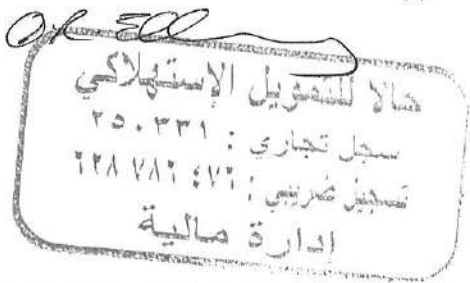 حالا للتمويل الإستهلاكي
سجل تجاري : ٢٥٠٣٣١
تسجيل ضريبي : ٤٧٢ ٧٨٦ ٢٢٨
إدارة مالية